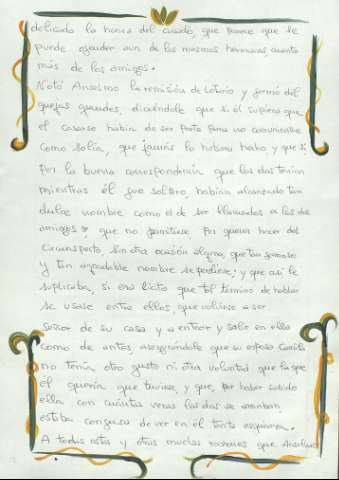 delicada la honra del casado, que parece que se
puede ofender aun de los mesmos hermanos, cuanto
más de los amigos.
Notó Anselmo la remisión de Lotario y formó del
quejas grandes, diciéndole que si él supiera que
el casarse había de ser parte para no comunicalle
como solía, que jamás lo hubiera hecho, y que si
por la buena correspondencia que los dos tenían
mientras él fue soltero, habían alcanzado tan
dulce nombre como el de ser llamados a los dos
amigos, que no permitiese, por querer hacer del
circunspecto, sin otra ocasión alguna, que tan famoso
y tan agradable nombre se perdiese; y que así le
suplicaba, si era lícito que tal término de hablar
se usase entre ellos, que volviese a ser
señor de su casa y a entrar y salir en ella
como de antes, asegurándole que su esposa Camila
no tenía otro gusto ni otra voluntad que la que
él quería que tuviese, y que, por haber sabido
ella con cuántas veras los dos se amaban,
estaba confusa de ver en él tanta esquiveza.
A todas estas y otras muchas razones que Anselmo